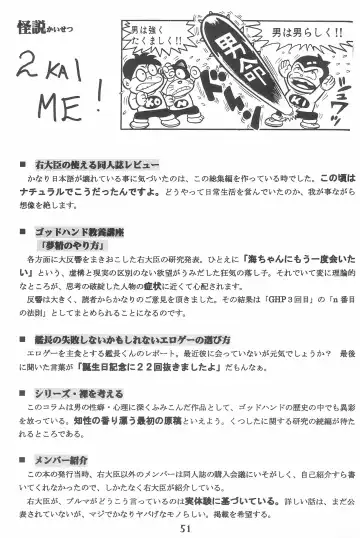 怪説かいせつ
2KAI
ME!
男は強く
たくましく!!
男は男らしく!!
男命
ドドーン!
■ 右大臣の使える同人誌レビュー
かなり日本語が壊れている事に気づいたのは、この総集編を作っている時でした。この頃は
ナチュラルでこうだったんですよ。どうやって日常生活を営んでいたのか、我が事ながら
想像を絶します。
■ ゴッドハンド教養講座
「夢精のやり方」
各方面に大反響をまきおこした右大臣の研究発表。ひとえに「海ちゃんにもう一度会いた
い」という、虚構と現実の区別のない欲望がうみだした狂気の落し子。それでいて変に理論的
なところが、思考の破綻した人物の症状に近くて心配されます。
反響は大きく、読者からかなりのご意見を頂きました。その結果は「GHP3回目」の「n番目
の法則」としてまとめられることになるのです。
■ 艦長の失敗しないかもしれないエロゲーの選び方
エロゲーを主食とする艦長くんのレポート。最近彼に会っていないが元気でしょうか? 最後
に聞いた言葉が「誕生日記念に22回抜きましたよ」だもんなぁ。
■ シリーズ・裸を考える
このコラムは男の性癖・心理に深くふみこんだ作品として、ゴッドハンドの歴史の中でも異彩
を放っている。知性の香り漂う最初の原稿といえよう。くつしたに関する研究の続編が待た
れるところである。
■ メンバー紹介
この本の発行当時、右大臣以外のメンバーは同人誌の購入会議にいそがしく、自己紹介すら書
いてくれなかったので、しかたなく右大臣が紹介している。
右大臣が、ブルマがどうこう言っているのは実体験に基づいている。詳しい話は、まだ公
表されていないが、マジでかなりヤバげなモノらしい。掲載を希望する。
51